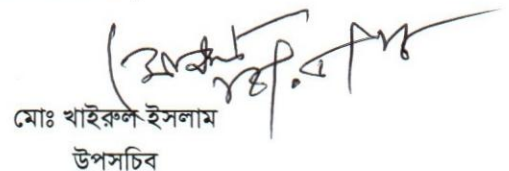 মোঃ খাইরুল ইসলাম
উপসচিব